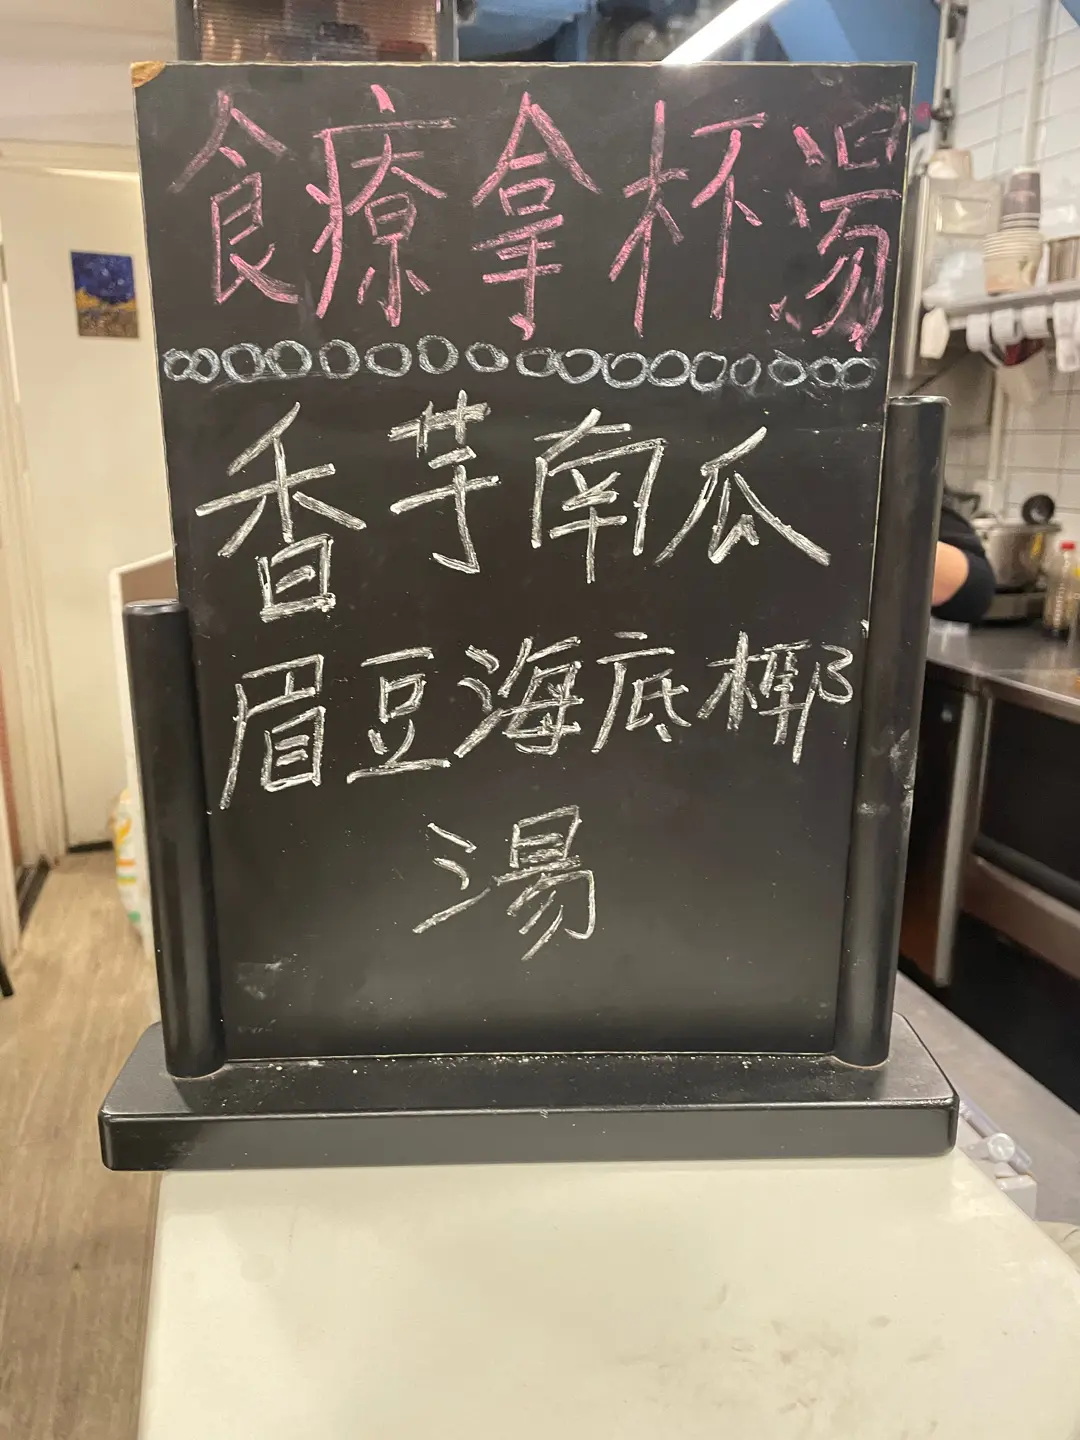 食療拿杯湯
香芋南瓜
眉豆海底椰
湯